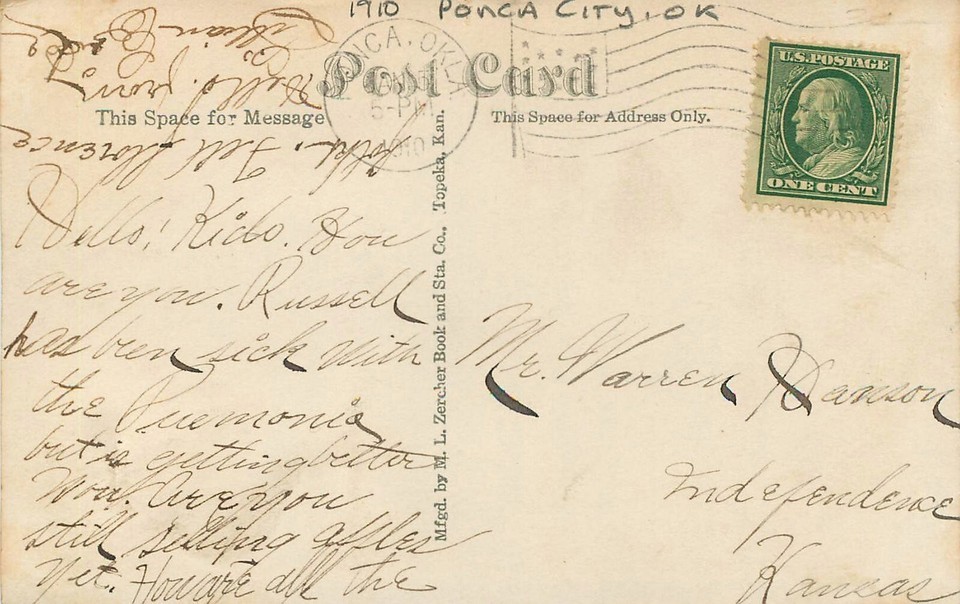 1910 PONCA CITY, OK
PONCA, OKLA
5-PM
1910
Post Card
U.S. POSTAGE
ONE CENT
This Space for Message
This Space for Address Only.
Mfgd. by M. L. Zercher Book and Sta. Co., Topeka, Kan.
Hello! Kido. How
are you. Russell
has been sick with
the Puemonia
but is getting better
now. Are you
still selling apples
yet. How are all the
folks. Tell Florence
Hello from
Lillian
Mr. Warren Hanson
Independence
Kansas